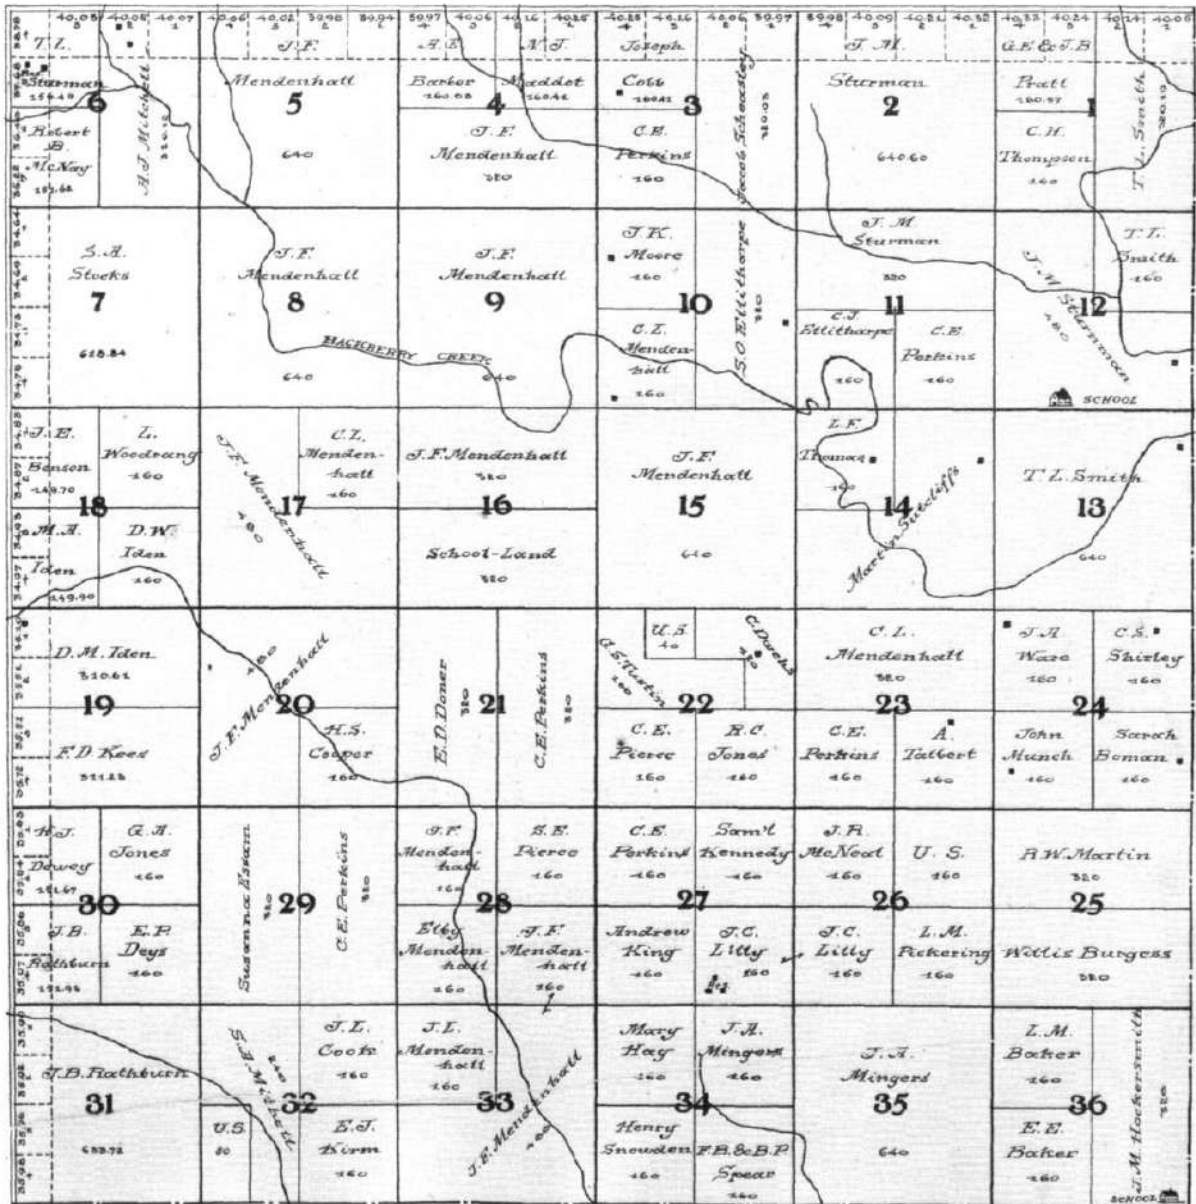 40.05 40.05 40.07 40.06 40.02 39.98 39.94 39.97 40.06 40.16 40.25 40.25 40.16 40.06 39.97 39.98 40.09 40.21 40.32 40.33 40.24 40.14 40.05
T. L.
Sturman
6
Robert
B.
McNay
A.J. Mitchell
J. F.
Mendenhall
5
640
A. E.
Barber
N. J.
Maddot
4
J. F.
Mendenhall
320
Joseph
Cobb
3
C. E.
Perkins
160
Jacob Scheasley
320.03
J. M.
Sturman
2
640.60
G.E. & J.B.
Pratt
160.37
1
C. H.
Thompson
160
T. L. Smith
320.19
S. A.
Stocks
7
J. F.
Mendenhall
8
640
J. F.
Mendenhall
9
640
HACKBERRY CREEK
J. K.
Moore
160
10
C. L.
Menden-
hall
160
S.O. Ellitharpe
320
J. M.
Sturman
320
11
C. J.
Ellitharpe
160
C. E.
Perkins
160
J. M. Sturnman
480
12
T. L.
Smith
160
SCHOOL
J. E.
Benson
149.70
L.
Woodrang
160
18
M. A.
Iden
149.90
D. W.
Iden
160
J. F. Mendenhall
480
17
C. L.
Menden-
hall
160
J. F. Mendenhall
320
16
School-Land
320
J. F.
Mendenhall
15
640
L. F.
Thomas
160
14
Martin Sutcliffs
T. L. Smith
13
640
D. M. Iden
310.61
19
F. D. Kees
311.28
J. F. Mendenhall
480
20
H. S.
Cooper
160
E. D. Doner
320
21
C. E. Perkins
320
U. S.
40
G. S. Tustin
160
22
C. E.
Pierce
160
R. C.
Jones
160
C. L.
Mendenhall
320
23
C. E.
Perkins
160
A.
Talbert
160
J. A.
Ware
160
C. S.
Shirley
160
24
John
Munch
160
Sarah
Boman
160
H. J.
Dewey
151.67
G. A.
Jones
160
30
J. B.
Rathburn
E. P.
Deys
160
Susanna Essam
320
29
C. E. Perkins
320
J. F.
Menden-
hall
160
S. E.
Pierce
160
28
Elby
Menden-
hall
160
J. F.
Menden-
hall
160
C. E.
Perkins
160
Sam'l
Kennedy
160
27
Andrew
King
160
J. C.
Lilly
160
J. R.
McNeal
160
U. S.
160
26
J. C.
Lilly
160
L. M.
Pickering
160
R. W. Martin
320
25
Willis Burgess
320
J. B. Rathburn
31
S. A. Mitchell
U. S.
80
J. L.
Cook
160
32
E. J.
Kirm
160
J. L.
Menden-
hall
160
33
J. F. Mendenhall
480
Mary
Hay
160
J. A.
Mingers
160
34
Henry
Snowden
160
F.B. & B.P.
Spear
160
J. A.
Mingers
35
640
L. M.
Baker
160
36
E. E.
Baker
160
J. M. Hockersmith
320
SCHOOL